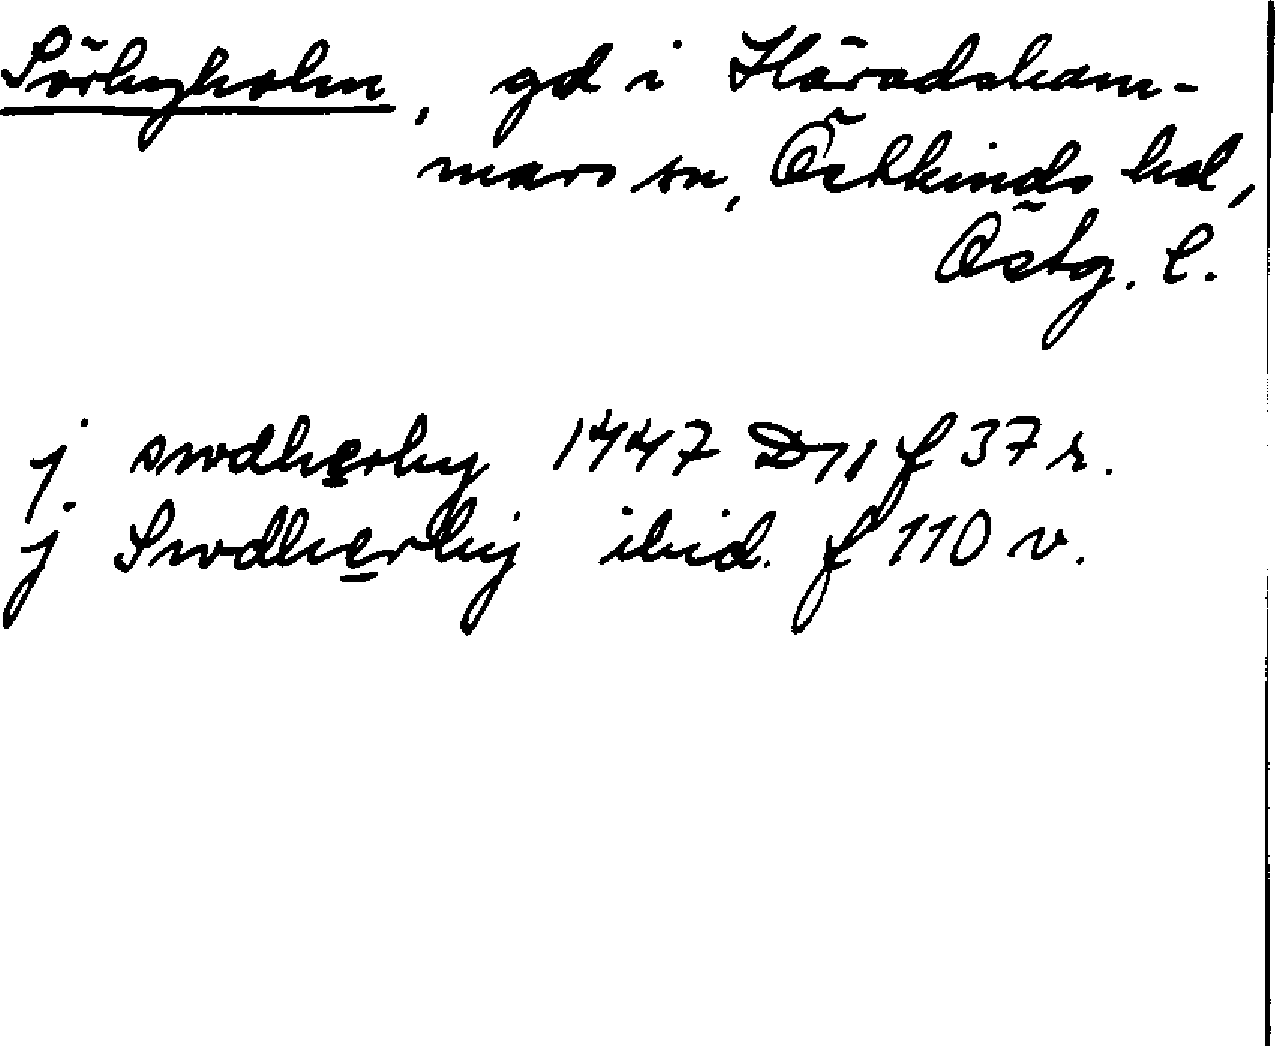 Sörbyholm, gd i Häradsham-
mars sn, Östkinds hd,
Östg. l.
j. swdherby 1447 D11 f 37 r.
j Swdherby ibid. f 110 v.